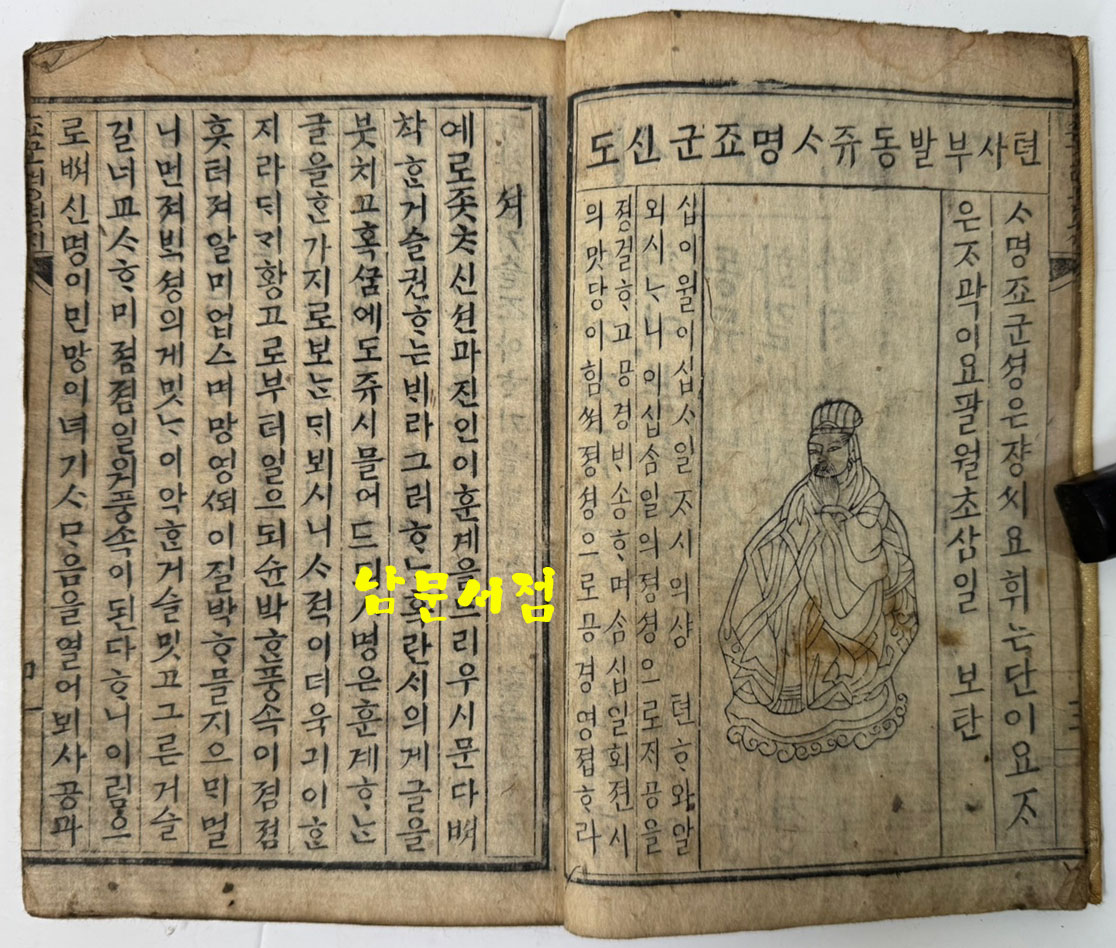 텬사부발동쥬ᄉᆞ명죠군신도
ᄉᆞ명죠군셩은쟝씨요휘ᄂᆞᆫ단이요ᄌᆞ
은ᄌᆞ곽이요팔월초삼일 보탄
십이월이십ᄉᆞ일ᄌᆞ시의샹 텬ᄒᆞ와알
외시ᄂᆞ니이십삼일의졍셩으로지공을
졍결ᄒᆞ고공경ᄇᆡ송ᄒᆞ며삼십일회젼시
의맛당이힘써졍셩으로공경영졉ᄒᆞ라
셔
예로좃ᄎᆞ신션과진인이훈계을드리우시문다ᄡᅥ
착ᄒᆞᆫ거슬권ᄒᆞᄂᆞᆫᄇᆡ라그러ᄒᆞᄂᆞ 란시의게글을
붓치고혹ᄭᅮᆷ에도쥬시믈어드 명은훈계ᄒᆞᄂᆞᆫ
글을ᄒᆞᆫ가지로보ᄂᆞᆫᄃᆡ뵈시니ᄉᆞ적이더욱긔이ᄒᆞᆫ
지라ᄃᆡ긔황고로부터일으되슌박ᄒᆞᆫ풍속이졈졈
흣터져알미업스며망영되이질박ᄒᆞ믈지으ᄆᆡ멀
니먼져ᄇᆡᆨ셩의게밋ᄂᆞ이악ᄒᆞᆫ거슬밋고그른거슬
길너교ᄉᆞᄒᆞ미졈졈일워풍속이된다ᄒᆞ니이럼으
로ᄡᅥ신명이민망이녀기ᄉᆞᄆᆞ음을열어뫼사공과
남문서점